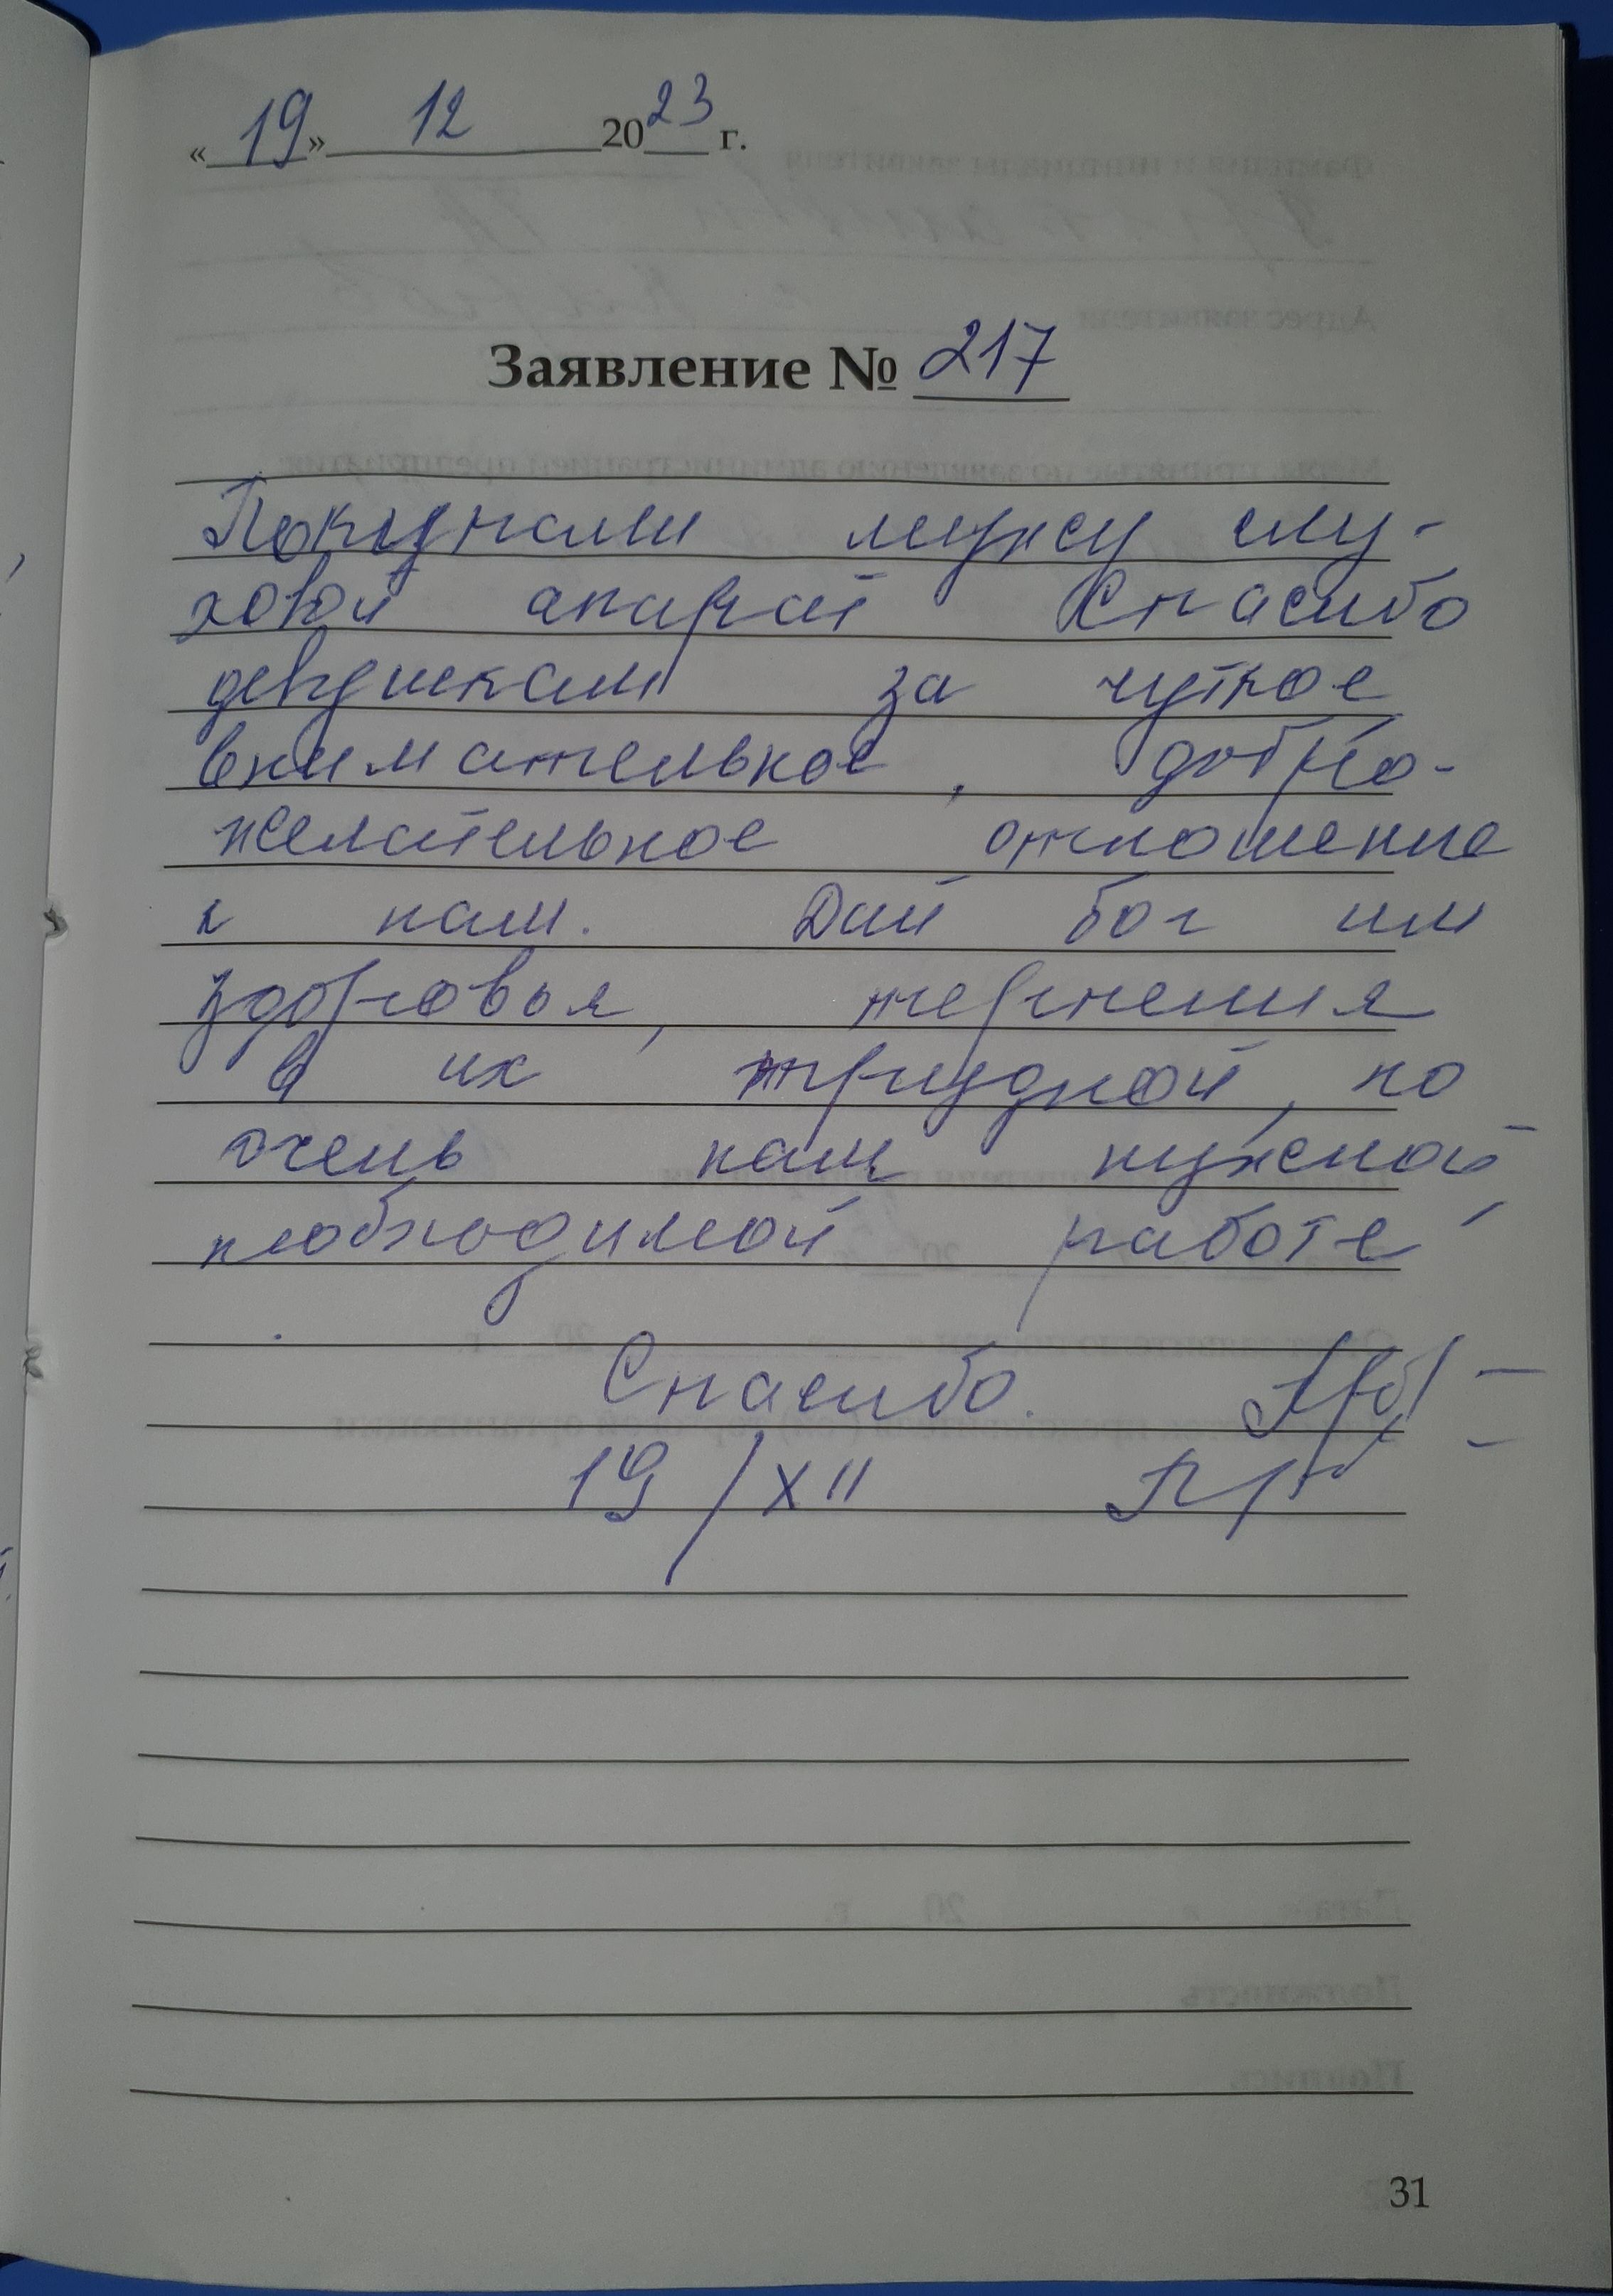 «19» 12 2023 г.
Заявление № 217
Покупали мужу слу-
ховой апарат Спасибо
девушкам за чуткое
внимательное, добро-
желательное отношение
к нам. Дай бог им
здоровья, терпения
в их трудной, но
очень нам нужной,
необходимой работе
Спасибо.
19/XII
31